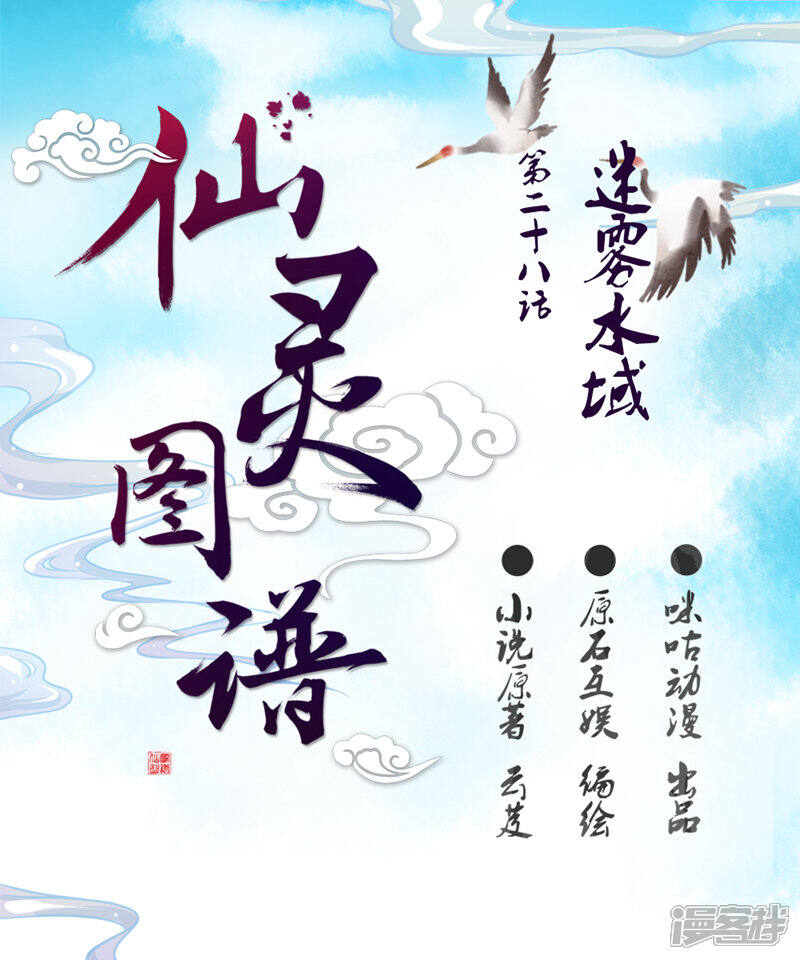 仙灵图谱
第二十八话
迷雾水域
咪咕动漫 出品
原石互娱 编绘
小说原著 云芨
漫客栈